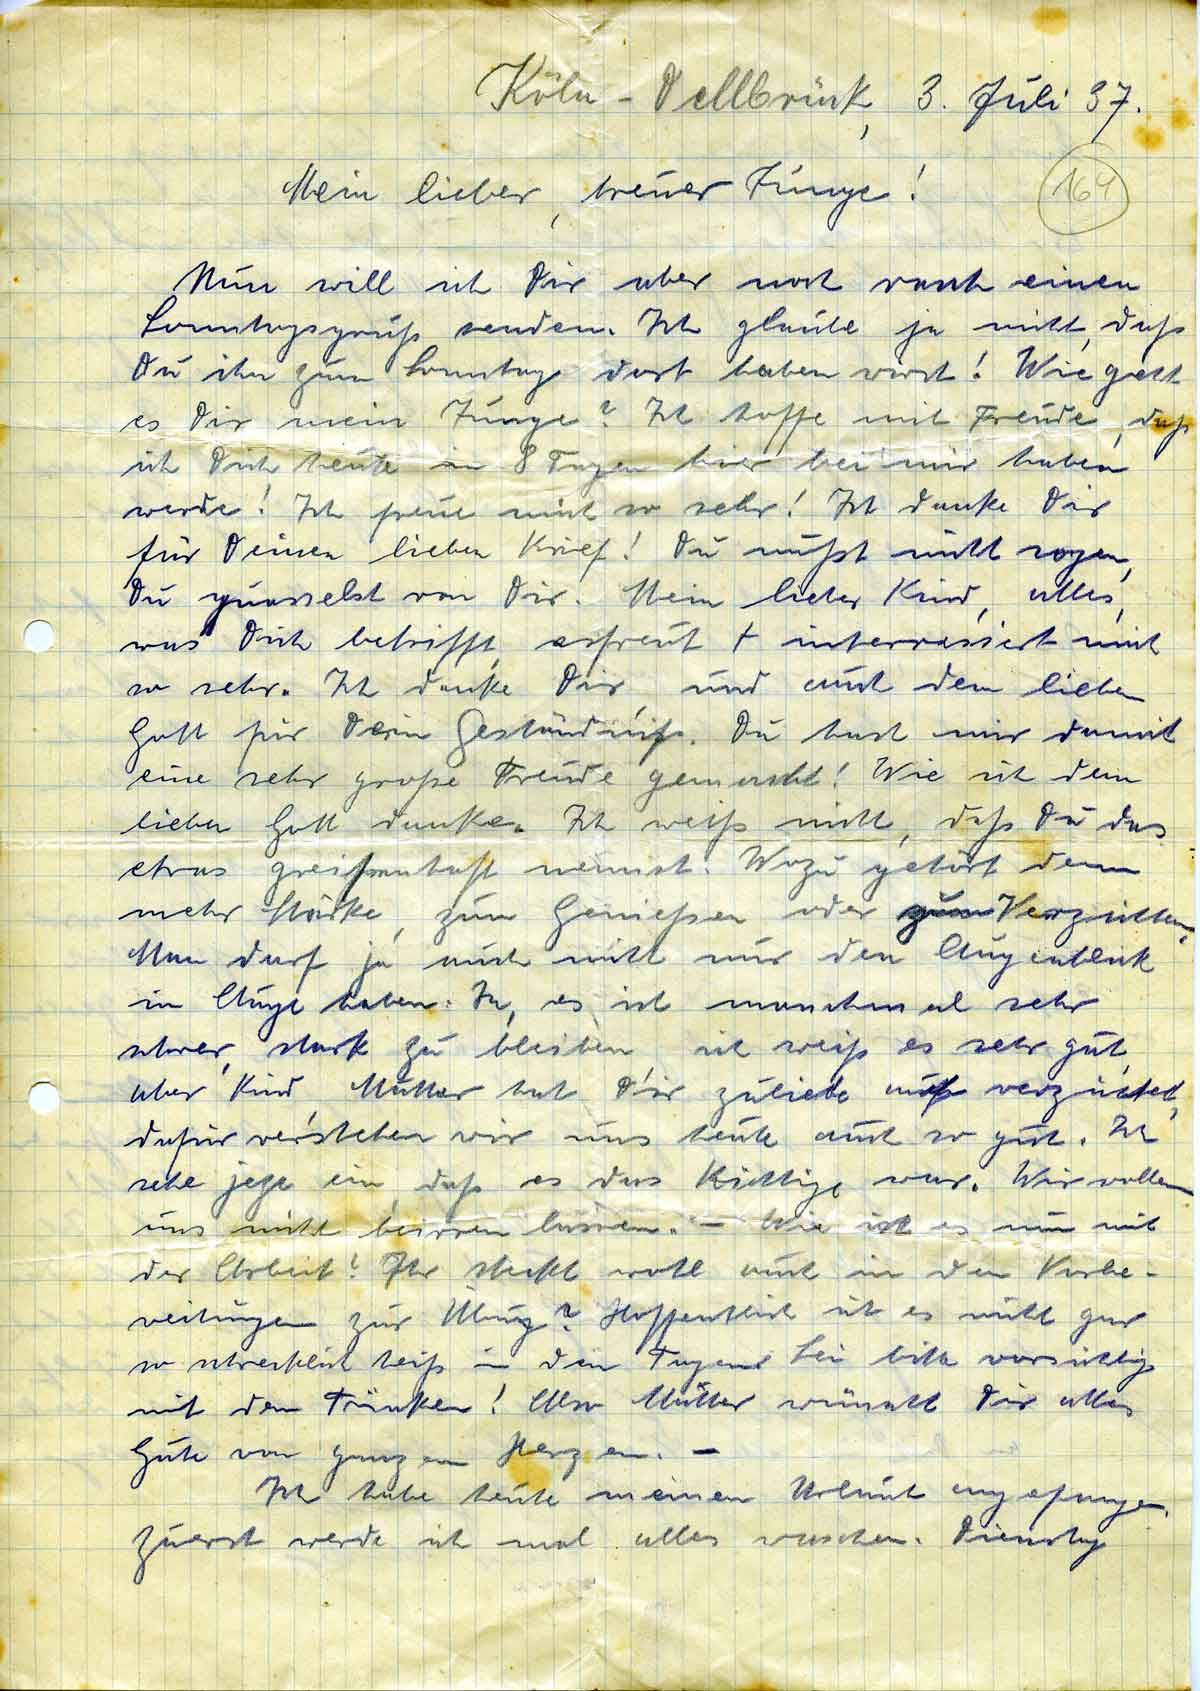 Köln - Dellbrück, 3. Juli 37.
164
Mein lieber, treuer Junge!
Nun will ich Dir aber noch rasch einen
Sonntagsgruß senden. Ich glaube ja nicht, daß
Du ihn zum Sonntag dort haben wirst! Wie geht
es Dir mein Junge? Ich hoffe mit Freude, daß
ich Dich heute in 8 Tagen hier bei mir haben
werde! Ich freue mich so sehr! Ich danke Dir
für Deinen lieben Brief! Du mußt nicht sagen,
Du quasselst von Dir. Mein lieber Kind, alles,
was Dich betrifft, erfreut + interressiert mich
so sehr. Ich danke Dir und auch dem lieben
Gott für Dein Geständniß. Du hast mir damit
eine sehr große Freude gemacht! Wie ich dem
lieben Gott danke. Ich weiß nicht, daß Du das
etwas greisenhaft nennst. Wozu gehört denn
mehr Stärke, zum Genießen oder zum Verzichten.
Man darf ja auch nicht nur den Augenblick
in Auge haben. Ja, es ist manchmal sehr
schwer, stark zu bleiben, ich weiß es sehr gut,
aber Kind, Mutter hat Dir zuliebe auch verzichtet,
dafür verstehen wir uns heute auch so gut. Ich
sehe jetzt ein, daß es das Richtige war. Wir wollen
uns nicht beirren lassen. - Wie ist es nun mit
der Arbeit? Ihr steckt wohl auch in den Vorbe-
reitungen zur Übung? Hoffentlich ist es nicht gar
so schrecklich heiß in den Tagen. Sei bitte vorsichtig
mit dem Trinken! Also Mutter wünscht Dir alles
Gute von ganzem Herzen. -
Ich habe heute meinen Urlaub angefangen.
Zuerst werde ich mal alles waschen. Dienstag